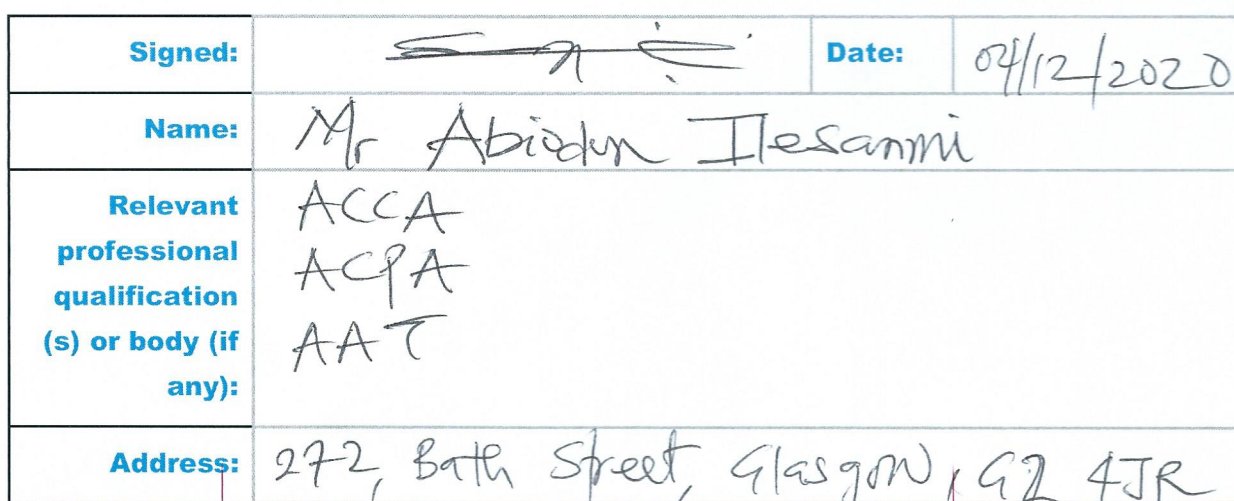 Signed: Date: 04/12/2020
Name: Mr Abiodun Ilesanmi
Relevant ACCA
professional ACPA
qualification
(s) or body (if AAT
any):
Address: 272, Bath Street, Glasgow, G2 4JR